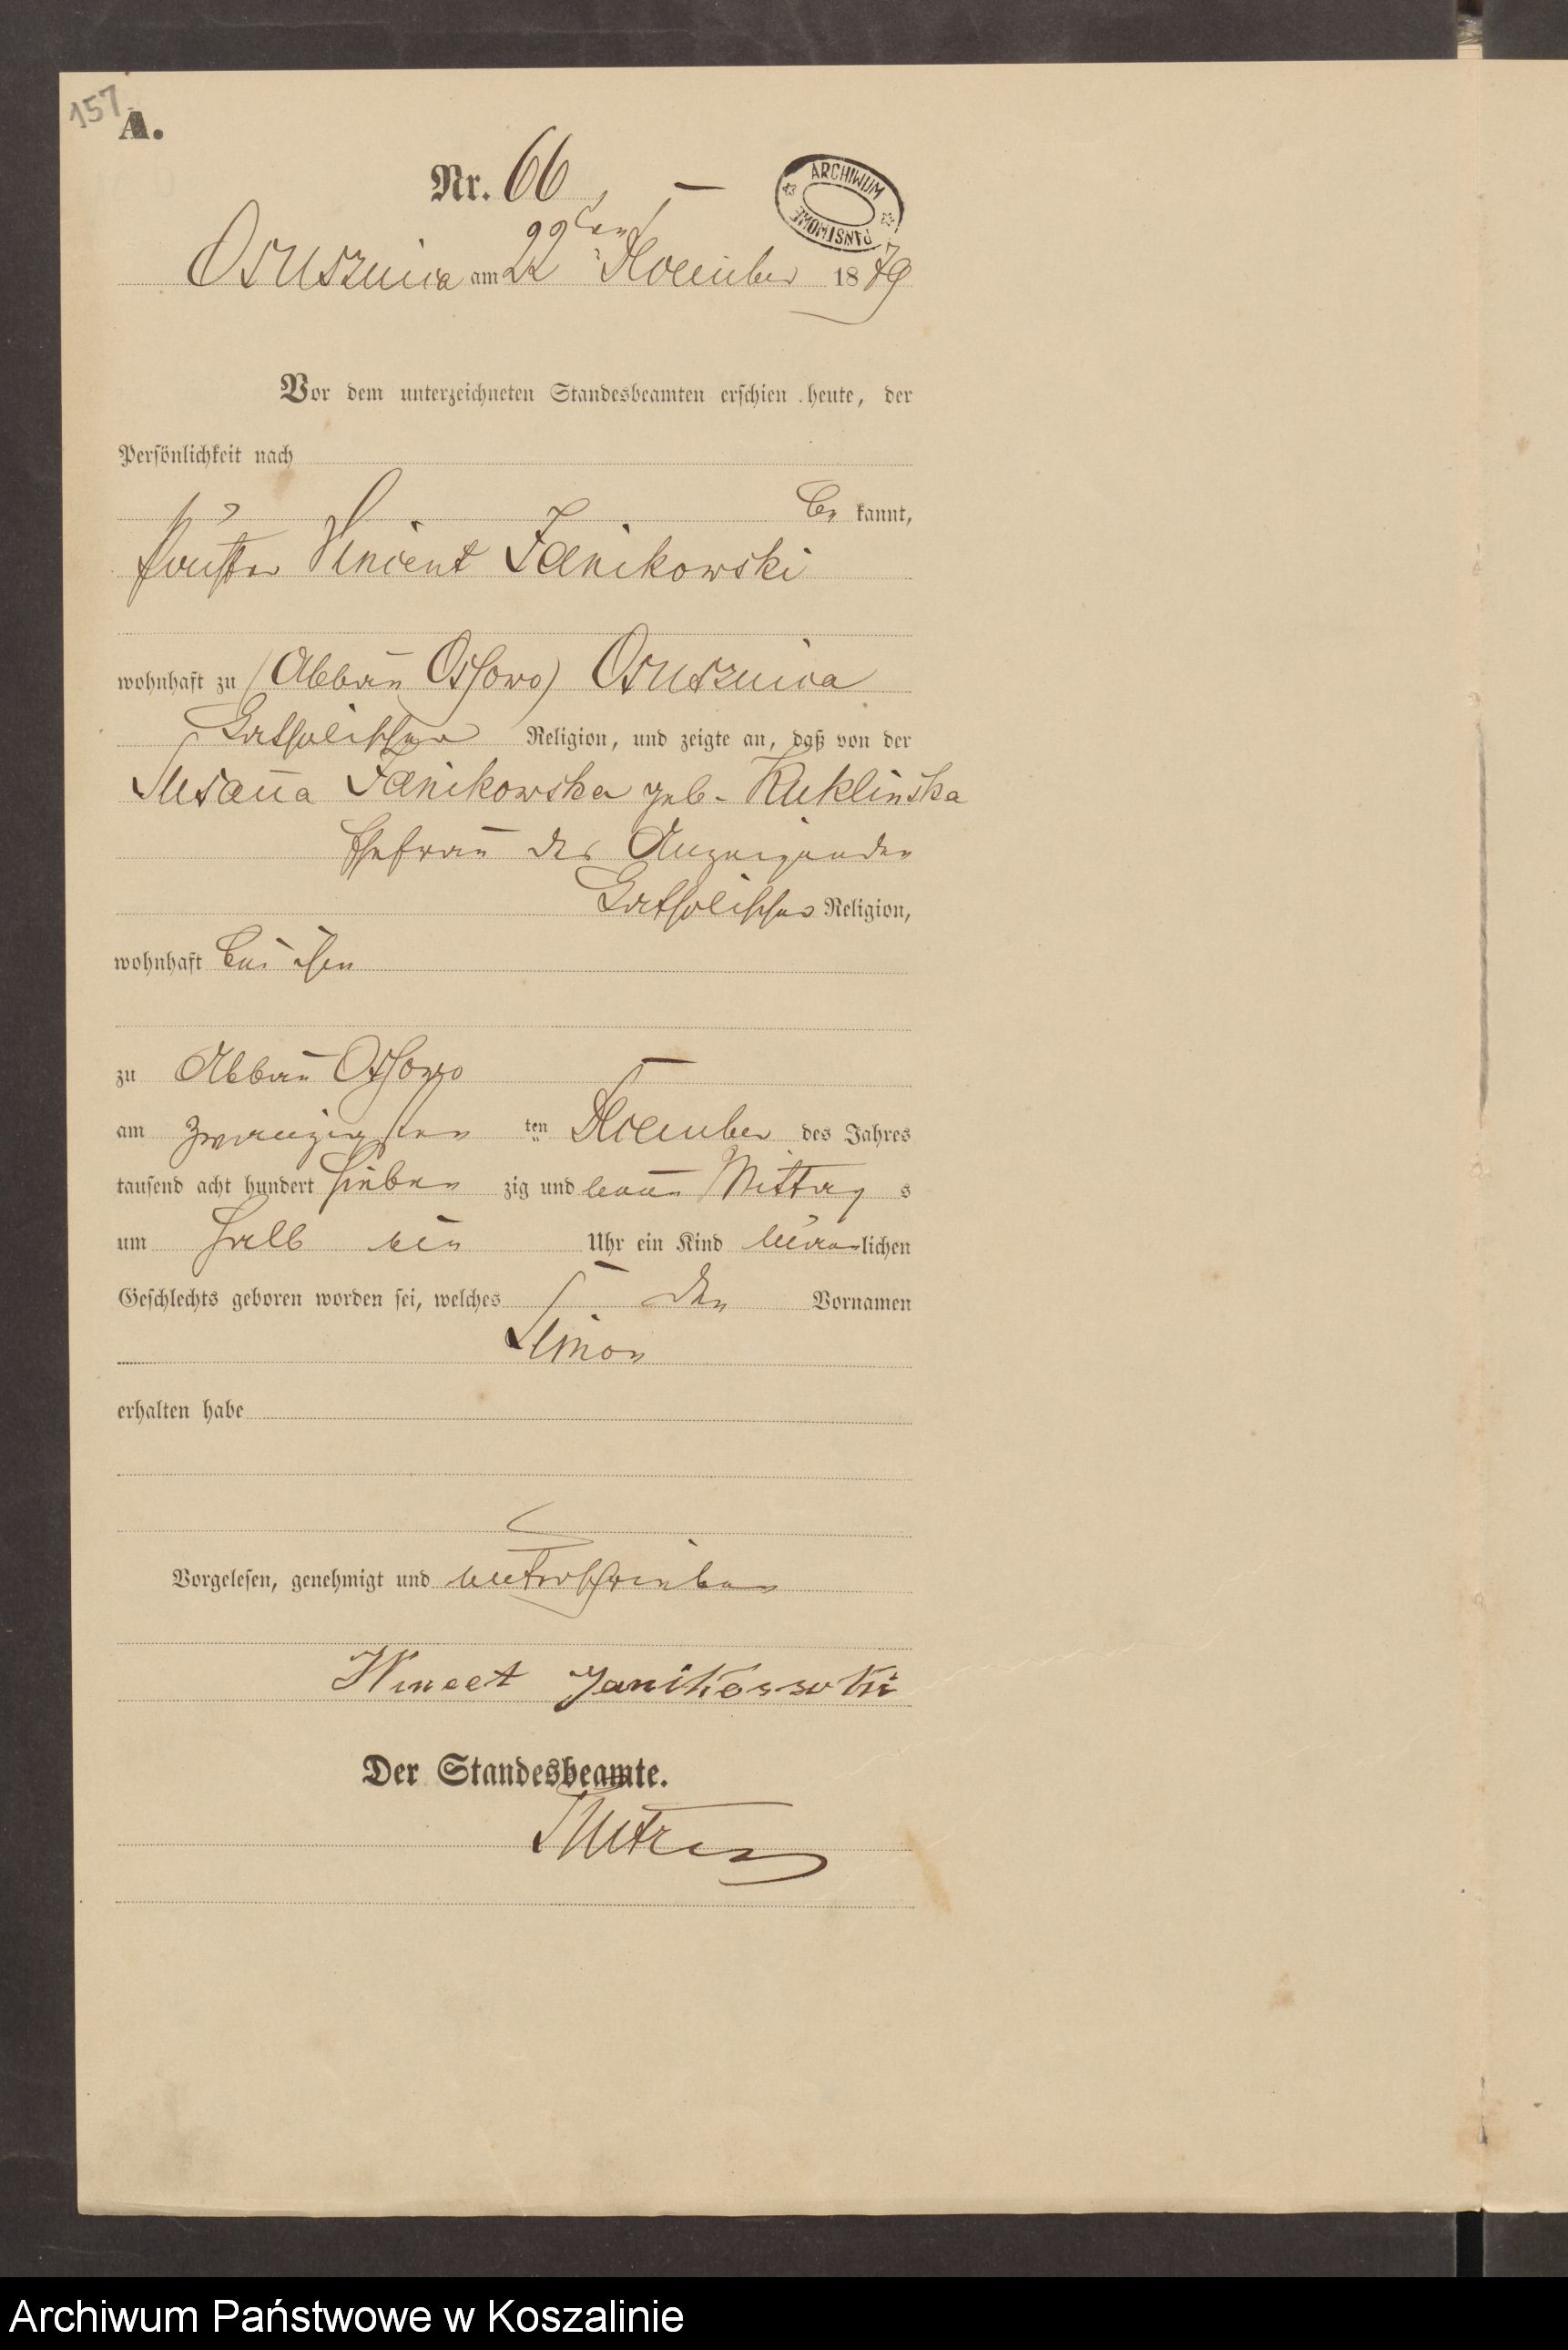 157
A.
Nr. 66
ARCHIWUM PAŃSTWOWE
22ten
Osusznica am 22 November 1879
Vor dem unterzeichneten Standesbeamten erschien heute, der
Persönlichkeit nach
be kannt,
Vincent Janikowski
wohnhaft zu (Abbau Ossowo) Osusznica
katholischer Religion, und zeigte an, daß von der
Susanna Janikowska geb. Kuklinska
Ehefrau des Anzeigenden
katholischer Religion,
wohnhaft bei ihm
zu Abbau Ossowo
am zwanzigsten ten November des Jahres
tausend acht hundert sieben zig und neun Mittag s
um halb ein Uhr ein Kind männlichen
Geschlechts geboren worden sei, welches den Vornamen
Simon
erhalten habe
Vorgelesen, genehmigt und unterschrieben
Wincet Janikowski
Der Standesbeamte.
Archiwum Państwowe w Koszalinie